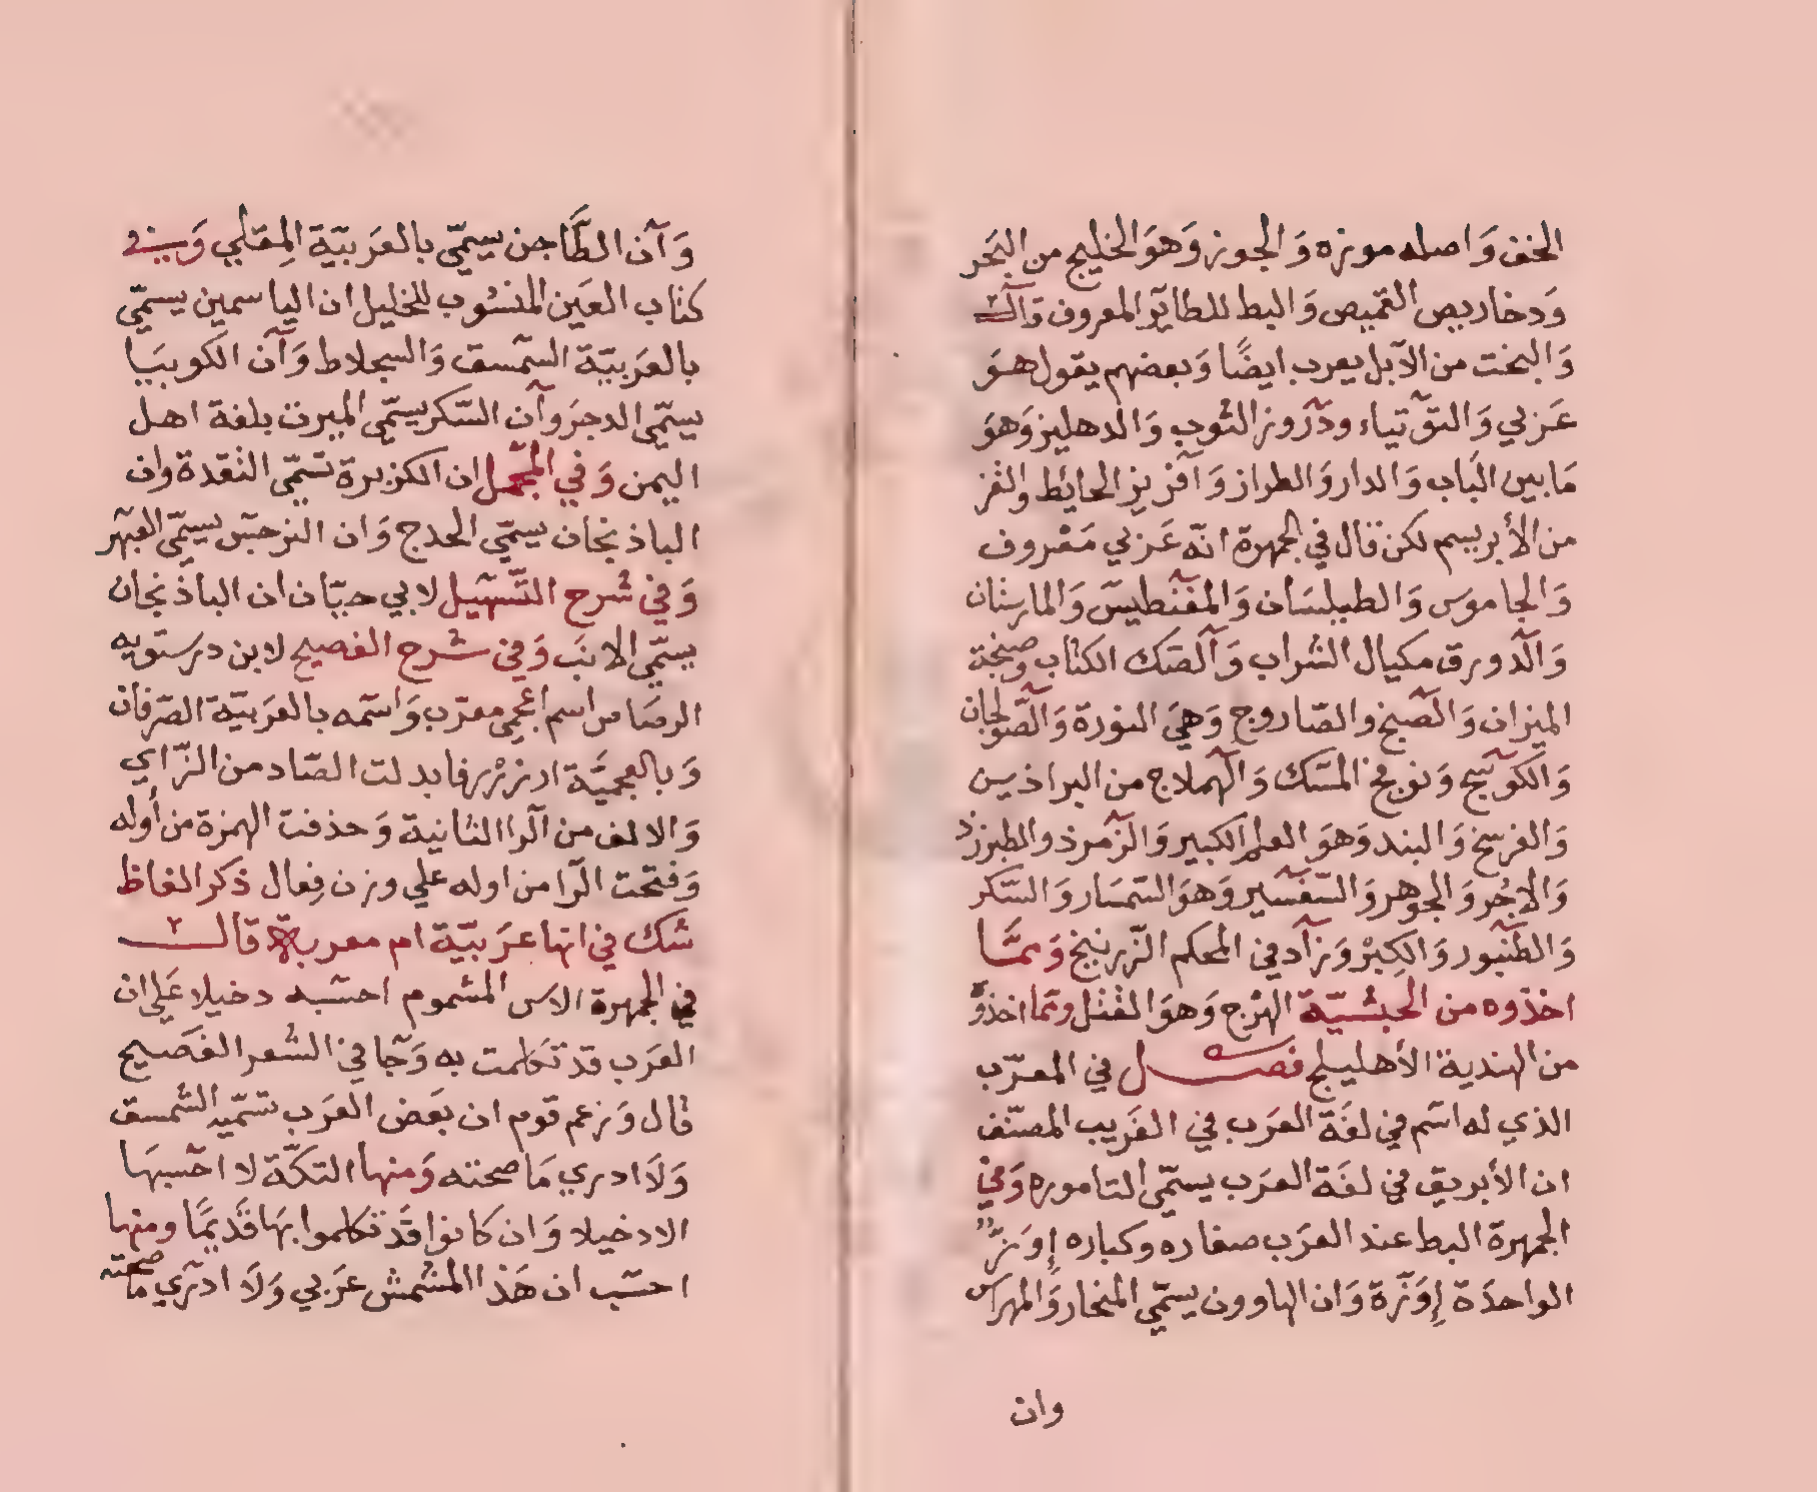 الخف وَاصله موزه وَالجوز وَهوَ الخليج من البَحر
وَدخاريص القميص وَالبط للطاير المعروف
وَالبخت من الآبل يعرب ايضًا وَبعضهم يقول هوَ
عَزبي وَالتوّتياء ودَرَوز الثوب وَالدهليز وَهوَ
مَا بين البَاب وَالدار وَالطراز وَافريز الحائط والقز
من الأبريسم لكن قال في الجمهرة انّه عَزبي مَعْروف
وَالجاموَس وَالطيلسَان وَالمغنطيسَ وَالمارستان
وَالدورق مكيال الشراب وَالصَك الكتاب وصنجة
الميزان وَالصَبخ والصّاروج وَهيَ النورة وَالصَّولجان
وَالكوَسج وَنوبخ المسَك وَالهملاج من البراذيس
وَالفرسخ وَالبند وَهوَ العلم الكبير وَالزمرذ والطبرزذ
وَالاجُر وَالجوهر وَالسّفسَير وَهوَ السّمسَار وَالسّكر
وَالطنّبور وَالكِبْر وَزاد في المحكم الزّرنيخ وَممَّا
اخذوه من الحبشيّة الهرْج وَهوَ القتل ومّما اخذوْ
من الهندية الأهليلج فصـل في المعرّب
الذي له اسَم في لغَة العرَب في الغَريب المصنّف
ان الأبريق في لغَة العرَب يسمّي التاموره وَفي
الجمهرة البط عند العرَب صغاره وكباره إِوَزّ
الواحدَة إِوَزّة وَان الهاوون يسمّي المنحاز وَالمهراس
وان
وَآن الطَّاجن يسمّي بالعَربيّة المِقلي وَفي
كتاب العَين المنسُوب للخليل ان الياسمين يسمّي
بالعَربيّة السّمسق وَالسجلاط وَآن الكوبيَيا
يسمّي الدجرَ وآن السّكر يسمّي المبرت بلغة اهل
اليمن وَفي المجّمل ان الكزبرة تسّمّي النقدة وان
الباذنجان يسمّي الحدج وَان النرجسّ يسمّي العبهر
وَفي شرح التّسَهيل لابي حيّان ان الباذنجان
يسمّي الانَب وَفي شرح الفصيح لابن درستويه
الرصَاص اسم اعجمي معرّب وَاسّمه بالعَربيّة الصّرفان
وَبالعجميَّة ارزرْز فابدلت الصّاد من الزّاي
وَالالف من الرا الثانية وَحذفت الهمزة من أوله
وَفتحت الرا من اوله علي وزن فِعال ذكر الفاظ
شك في انها عرَبيّة ام معربة قال
في الجمهرة الاس المشموم احسّبه دخيلا عَلي ان
العرَب قد تكلمت به وَجا في الشعر الفَصيح
قال وَزعم قوم ان بعَض العرَب تسمّيه السّمسق
وَلَا ادري مَا صحته وَمنها التكّة لا احسّبهَا
الا دخيلا وَان كانوا قَد تكلموا بهَا قَديمًا ومنها
احسّب ان هَذا المشمش عَربي وَلَا ادري مَا صحته